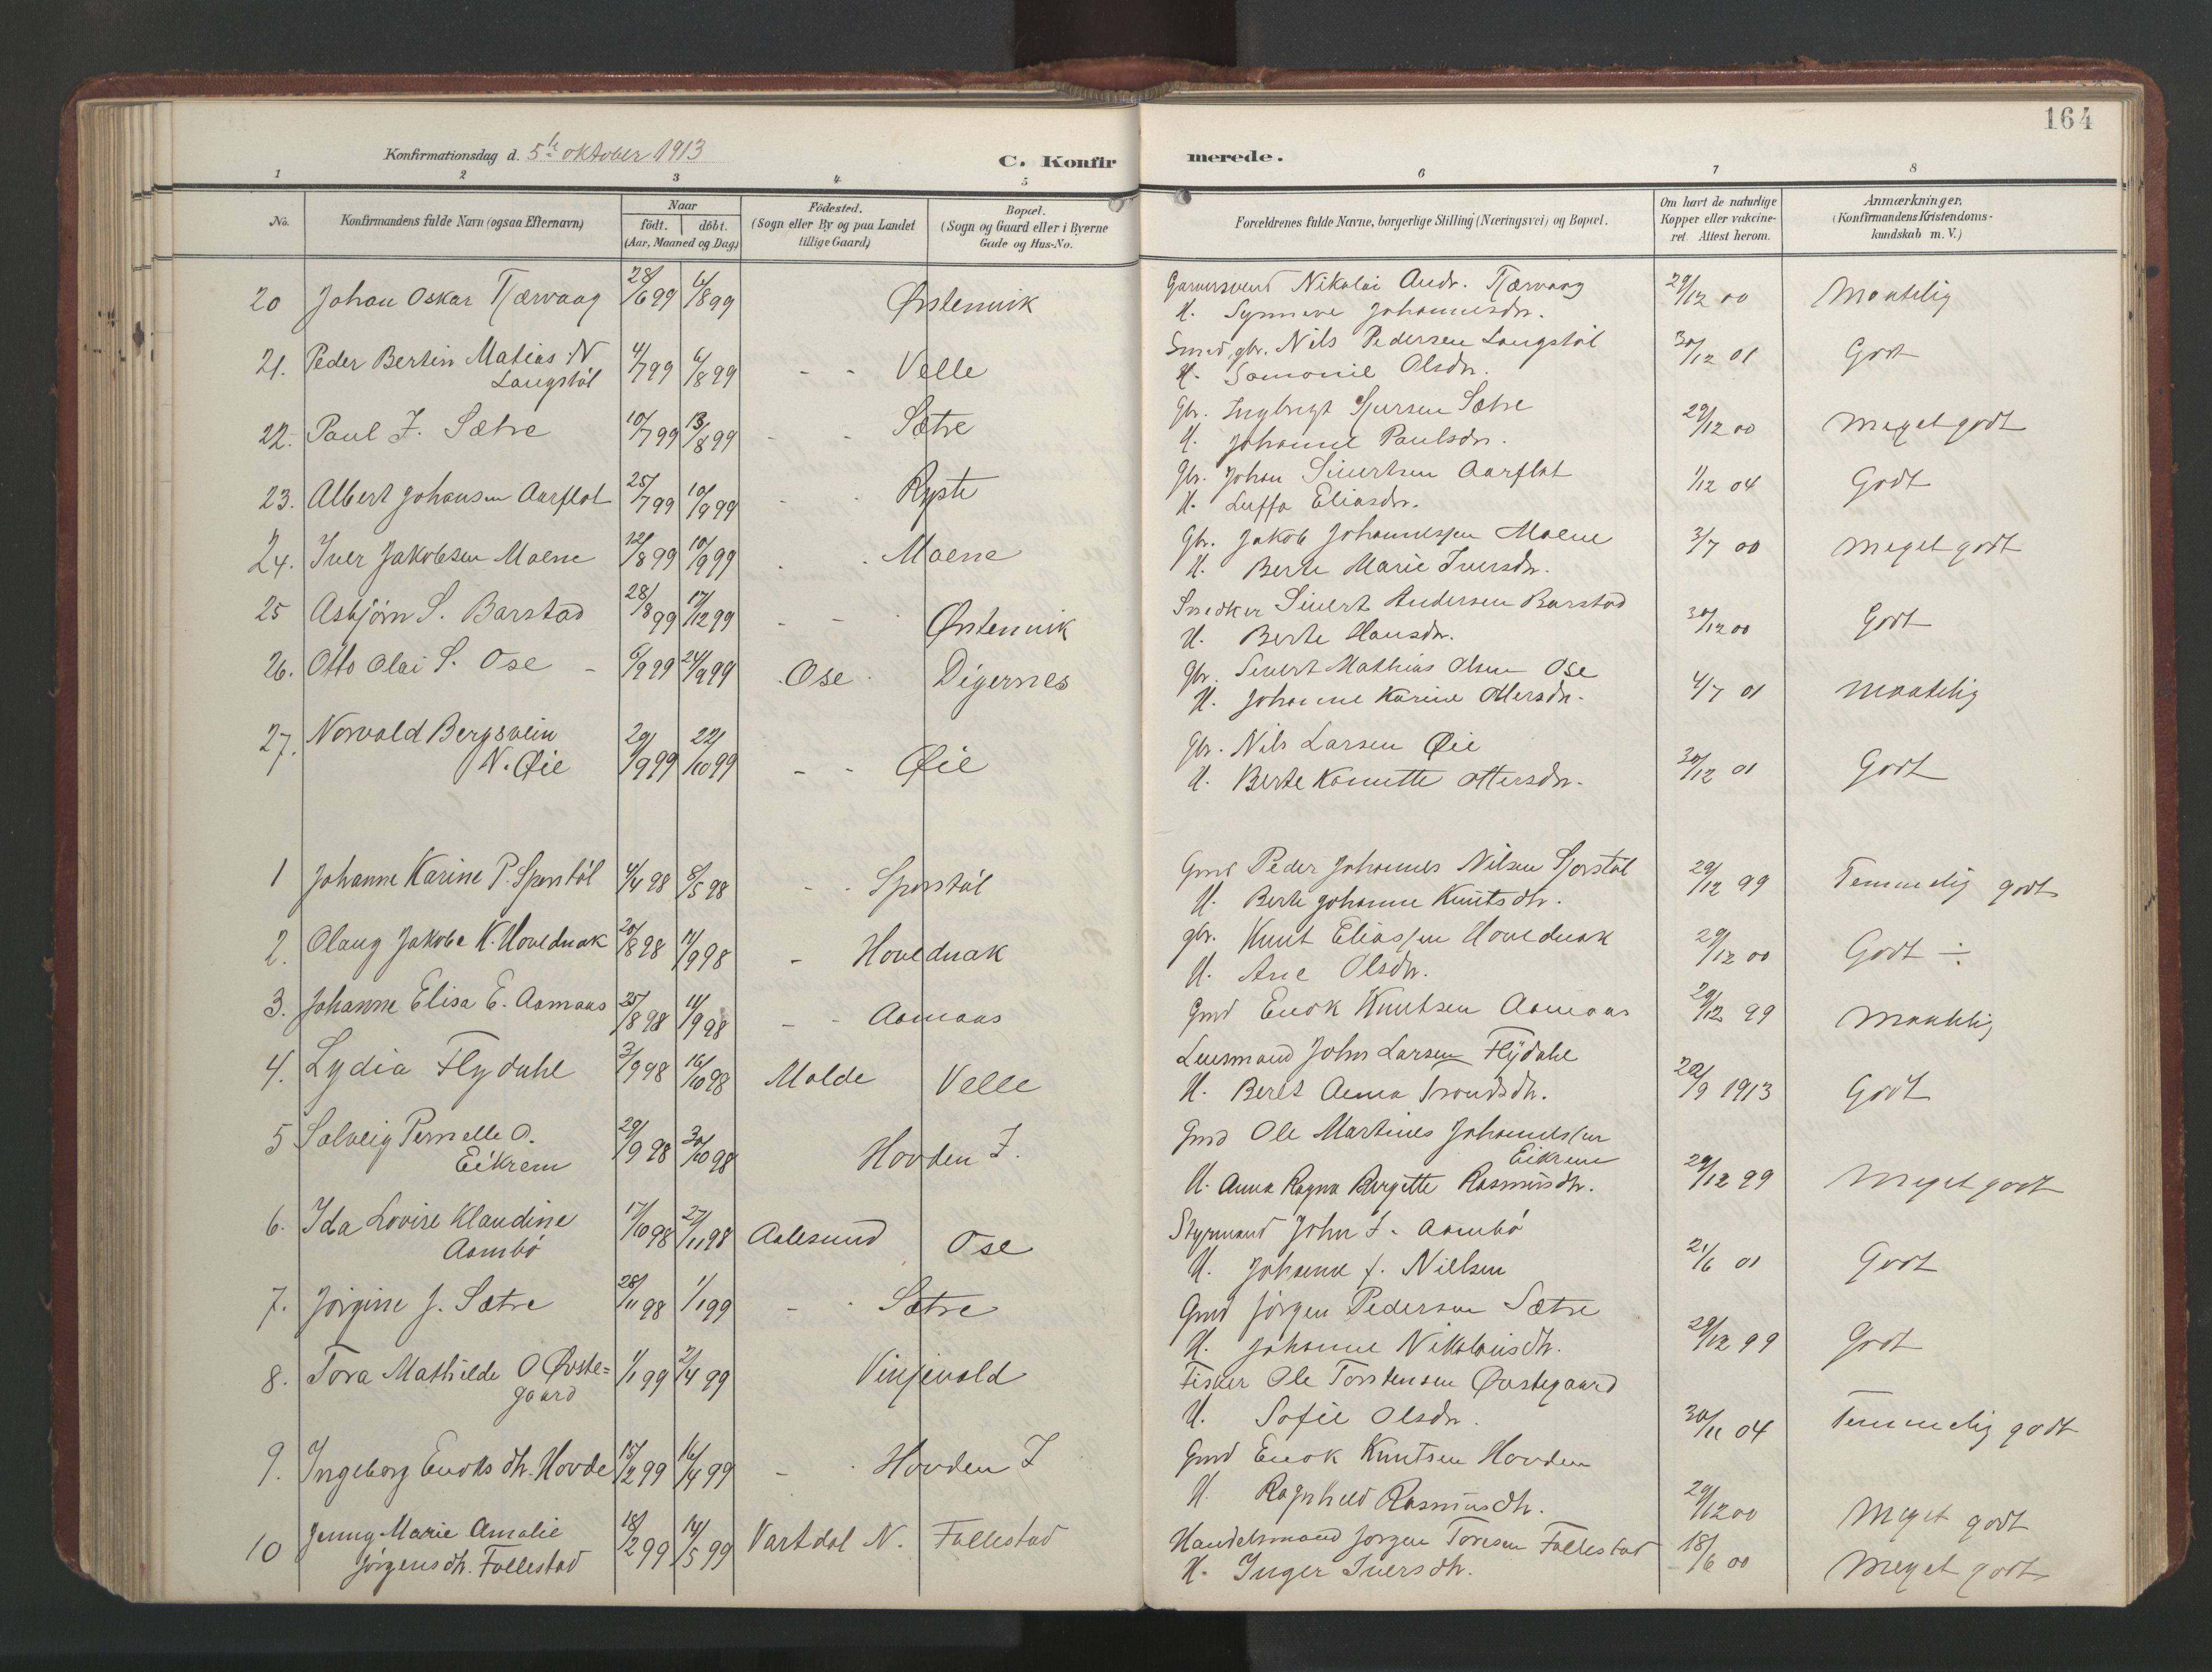 164
Konfirmationsdag d. 5te oktober 1913
C. Konfirmerede.
1 2 3 4 5 6 7 8
No. Konfirmandens fulde Navn (ogsaa Efternavn) Naar födt. döbt. (Aar, Maaned og Dag) Födested. (Sogn eller By og paa Landet tillige Gaard) Bopæl. (Sogn og Gaard eller i Byerne Gade og Hus-No. Forældrenes fulde Navne, borgerlige Stilling (Næringsvei) og Bopæl. Om havt de naturlige Kopper eller vakcineret. Attest herom. Anmærkninger. (Konfirmandens Kristendomskundskab m. V.)
20 Johan Oskar Tjærvaag 28/6 99 6/8 99 Østenvik Nikolai Andr. Tjærvaag 29/12 00 Maatelig
H. Synneve Johannesdr.
21. Peder Bertin Matias N 4/7 99 6/8 99 - - Velle Smed, gbr. Nils Pedersen Langstöl 30/12 01 Godt
Langstöl H. Olsdr.
22. Paul I. Sætre 10/7 99 13/8 99 - - Sætre Gbr. Ingbrigt Sjursen Sætre 29/12 00 Meget godt
H. Johanne Paulsdr.
23. Albert Johansen Aarflot 25/7 99 10/9 99 - - Ryste Gbr. Johan Sivertsen Aarflot 1/12 04 Godt
H. Luffa Eliasdr.
24. Iver Jakobsen Moene 12/8 99 10/9 99 - - Moene Gbr. Jakob Johannessen Moene 3/7 00 Meget godt
H. Berte Marie Iversdr.
25 Asbjörn S. Barstad 28/8 99 17/12 99 - - Østenvik Snedker Sivert Andersen Barstad 30/12 00 Godt
H. Berte Hansdr.
26. Otto Olai S. Ose - 6/9 99 24/9 99 Ose Digernes Gbr. Sivert Mathias Olsen Ose 4/7 01 Maatelig
H. Johanne Karine Ottersdr.
27. Norvald Bergsvein 29/9 99 22/10 99 - - Øie Gbr. Nils Larsen Øie 30/12 01 Godt
N. Øie H. Berte Ottersdr.
1 Johanne Karine P. Sporstöl 4/4 98 8/5 98 - - Sporstöl Gmd Peder Johannes Nilsen Sporstöl 29/12 99 Temmelig godt
H. Berte Johanne Knutsdtr.
2. Olaug Jakobe K. Hovednak 20/8 98 11/9 98 - Hovednak Gbr. Knut Eliassen Hovednak 29/12 00 Godt ÷
H. Ane Olsdtr.
3. Johanne Elisa E. Aamaas 25/8 98 11/9 98 - - Aamaas Gmd Enok Knutsen Aamaas 29/12 99 Maatelig
4. Lydia Flydahl 3/9 98 16/10 98 Molde Velle Lensmand John Larsen Flydahl 20/9 1913 Godt
H. Beret Anna Trondsdtr.
5 Solveig Pernelle O. 29/9 98 30/10 98 Hovden I. Gmd Ole Martines Johannessen
Eikrem Eikrem 29/12 99 Meget godt
H. Anna Ragna Bergitte Rasmusdtr.
6. Ida Lovise Klaudine 17/10 98 27/11 98 Aalesund Ose Styrmand John I. Aambö 21/6 01 Godt
Aambö H. Johanne f. Nielsen
7. Jörgine J. Sætre 28/11 98 1/1 99 - - Sætre Gmd Jörgen Pedersen Sætre 29/12 99 Godt
H. Johanne Nikolaisdtr.
8. Tora Mathilde O Øvste= 1/1 99 2/4 99 Vinjevold Fisker Ole Torstensen Øvstegaard 30/11 04 Temmelig godt
gaard H. Sofie Olsdr.
9. Ingeborg Enoksdtr. Hovde 15/2 99 16/4 99 - - Hovden I Gmd Enok Knutsen Hovden 29/12 00 Meget godt
H. Ragnhild Rasmusdtr.
10 Jenny Marie Amalie 18/2 99 14/5 99 Vartdal N. Follestad Handelsmand Jörgen Toresen Follestad 18/6 00 Meget godt
Jörgensdtr. Follestad H. Inger Iversdtr.